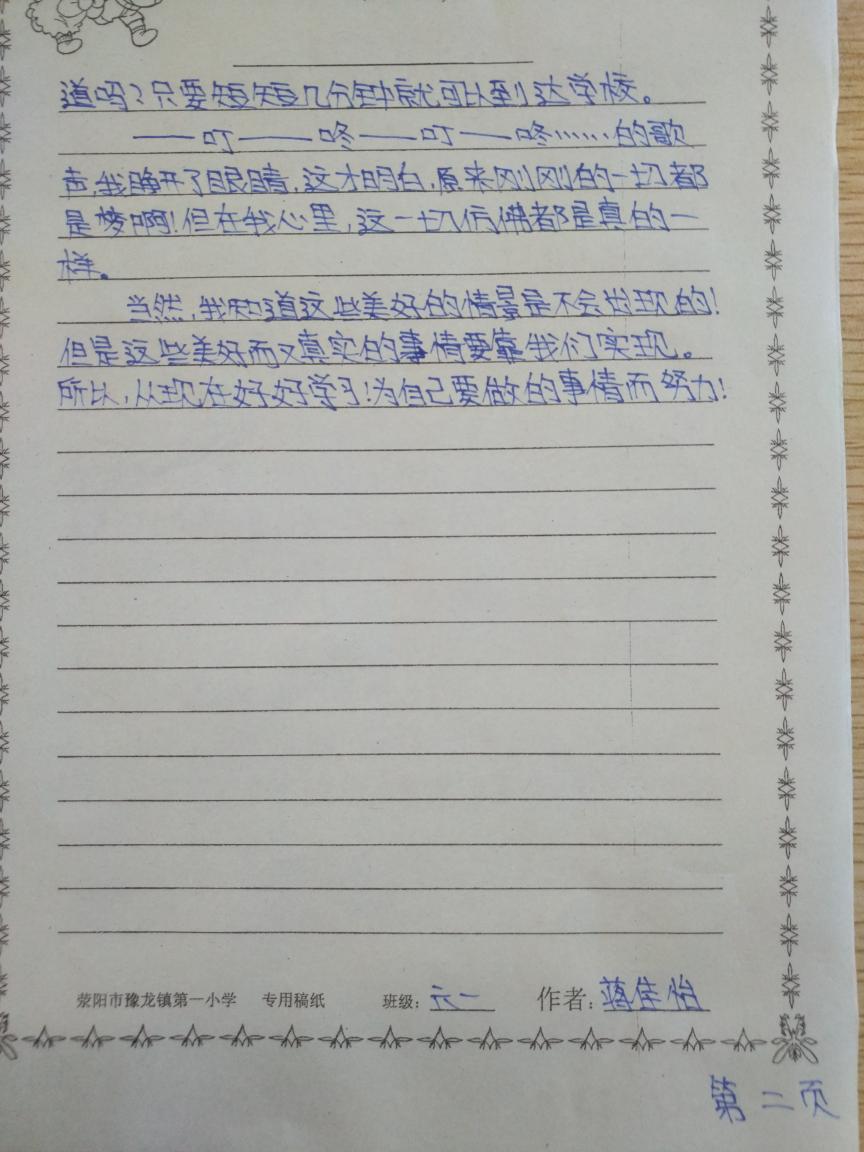 道吗?只要短短几分钟就可以到达学校。
——叮——咚——叮——咚……的歌
声,我睁开了眼睛,这才明白,原来刚刚的一切都
是梦啊!但在我心里,这一切仿佛都是真的一
样。
当然,我知道这些美好的情景是不会出现的!
但是这些美好而又真实的事情要靠我们实现。
所以,从现在好好学习!为自己要做的事情而努力!
荥阳市豫龙镇第一小学 专用稿纸 班级:六一 作者:蒋佳怡
第二页